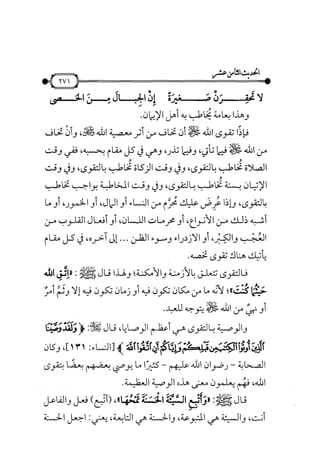 الحديث الثامن عشر
٢٧١
لا تحقـرن صـغيرة إن الجبـال مـن الحـصى
وهذا بعامة يُخاطب به أهل الإيمان.
فإذًا تقوى الله ﷻ أن تخاف من أثر معصية الله ﷻ، وأنْ تخاف
من الله ﷻ فيما تأتي، وفيما تذر، وهي في كل مقام بحسبه، ففي وقت
الصلاة تُخاطب بالتقوى، وفي وقت الزكاة تُخاطب بالتقوى، وفي وقت
الإتيان بسنة تُخاطب بـالتقوى، وفي وقـت المخاطبـة بواجـب تخاطب
بالتقوى، وإذا عُرِضَ عليك مُحرَّم من النساء أو المال، أو الخمور، أو ما
أشبه ذلـك مـن الأنـواع، أو محرمـات اللسـان، أو أفعـال القلـوب مـن
العُجْب والكبر، أو الازدراء وسوء الظن ... إلى آخره، في كل مقام
يأتيك هناك تقوى تخصه.
فـالتقوى تتعلـق بالأزمنـة والأمكنـة؛ ولهـذا قـال ﷺ: «اتَّـقِ اللهَ
حَيْثُمَا كُنْتَ»؛ لأنه ما من مكان تكون فيه أو زمان تكون فيه إلا وثَمَّ أمرٌ
أو نهيٌ من الله ﷻ يتوجه للعبد.
والوصية بـالتقوى هـي أعظـم الوصـايا، قـال ﷻ: ﴿ وَلَقَدْ وَصَّيْنَا
الَّذِينَ أُوتُوا الْكِتَابَ مِن قَبْلِكُمْ وَإِيَّاكُمْ أَنِ اتَّقُوا اللَّهَ ﴾ [النساء: ١٣١]، وكان
الصحابة - رضوان الله عليهم - كثيرًا ما يوصي بعضهم بعضًا بتقوى
الله، فهم يعلمون معنى هذه الوصية العظيمة.
قـال ﷺ: «وَأَتْبِعِ السَّيِّئَةَ الْحَسَنَةَ تَمْحُهَا»، (أتبع) فعـل والفاعـل
أنت، والسيئة هي المتبوعة، والحسنة هي التابعة، يعني: اجعل الحسنة